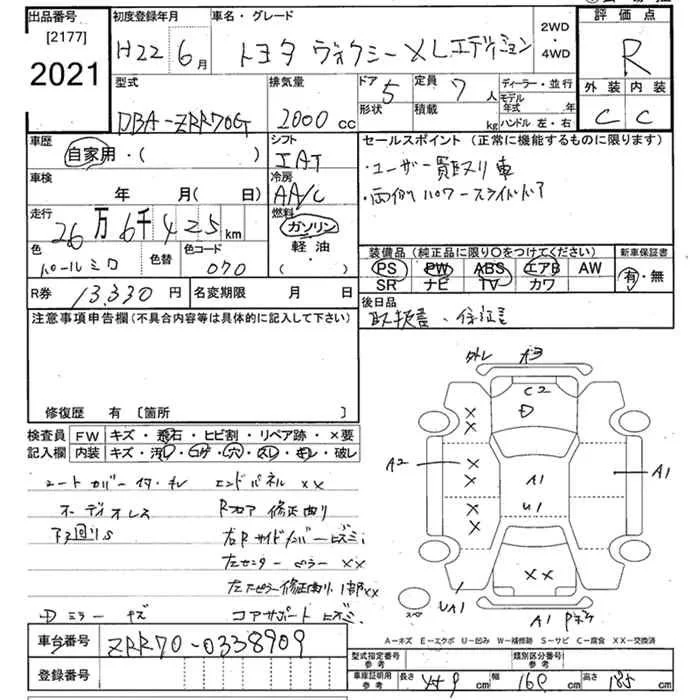 出品番号 初度登録年月 車名・グレード 評価点
[2177]
2021
H22 6月 トヨタ ヴォクシー XLエディション 2WD・4WD R
型式 排気量 ドア 5 定員 7人 ディーラー・並行 外装 内装
DBA-ZRR70G 2000cc 形状 積載 kg モデル年式 年 ハンドル 左・右 C C
車歴 シフト セールスポイント (正常に機能するものに限ります)
自家用・( ) IAT ・ユーザー買取り車
車検 年 月( 日) 冷房 AA/C ・両側パワースライドドア
走行 26万6千425km 燃料 ガソリン
軽油・( )
色 パールシロ 色替 色コード 070
装備品 (純正品に限り〇をつけてください) 新車保証書
PS PW ABS エアB AW 有・無
SR ナビ TV カワ
R券 13,330円 名変期限 月 日 後日品
取扱書・保証書
注意事項申告欄(不具合内容等は具体的に記入して下さい)
修復歴 有 [箇所 ]
検査員 FW キズ・飛石・ヒビ割・リペア跡・×要
記入欄 内装 キズ・汚レ・コゲ・穴・スレ・キレ・破レ
エンドパネル ××
オーディオレス Rフロア 修正有り
下回りS
左センターピラー ××
Dミラー キズ コアサポート ヒズミ
外レ A3
C2
D
×
×
A2
×
×
A1
A1
U1
×
×
××
UA1
スペア
A1
A−キズ E−エクボ U−凹み W−補修跡 S−サビ C−腐食 XX−交換済
車台番号 ZRR70-0338909
型式指定番号 参考 類別区分番号 参考
登録番号 車庫証明用 参考 長さ 459cm 幅 169cm 高さ 185cm